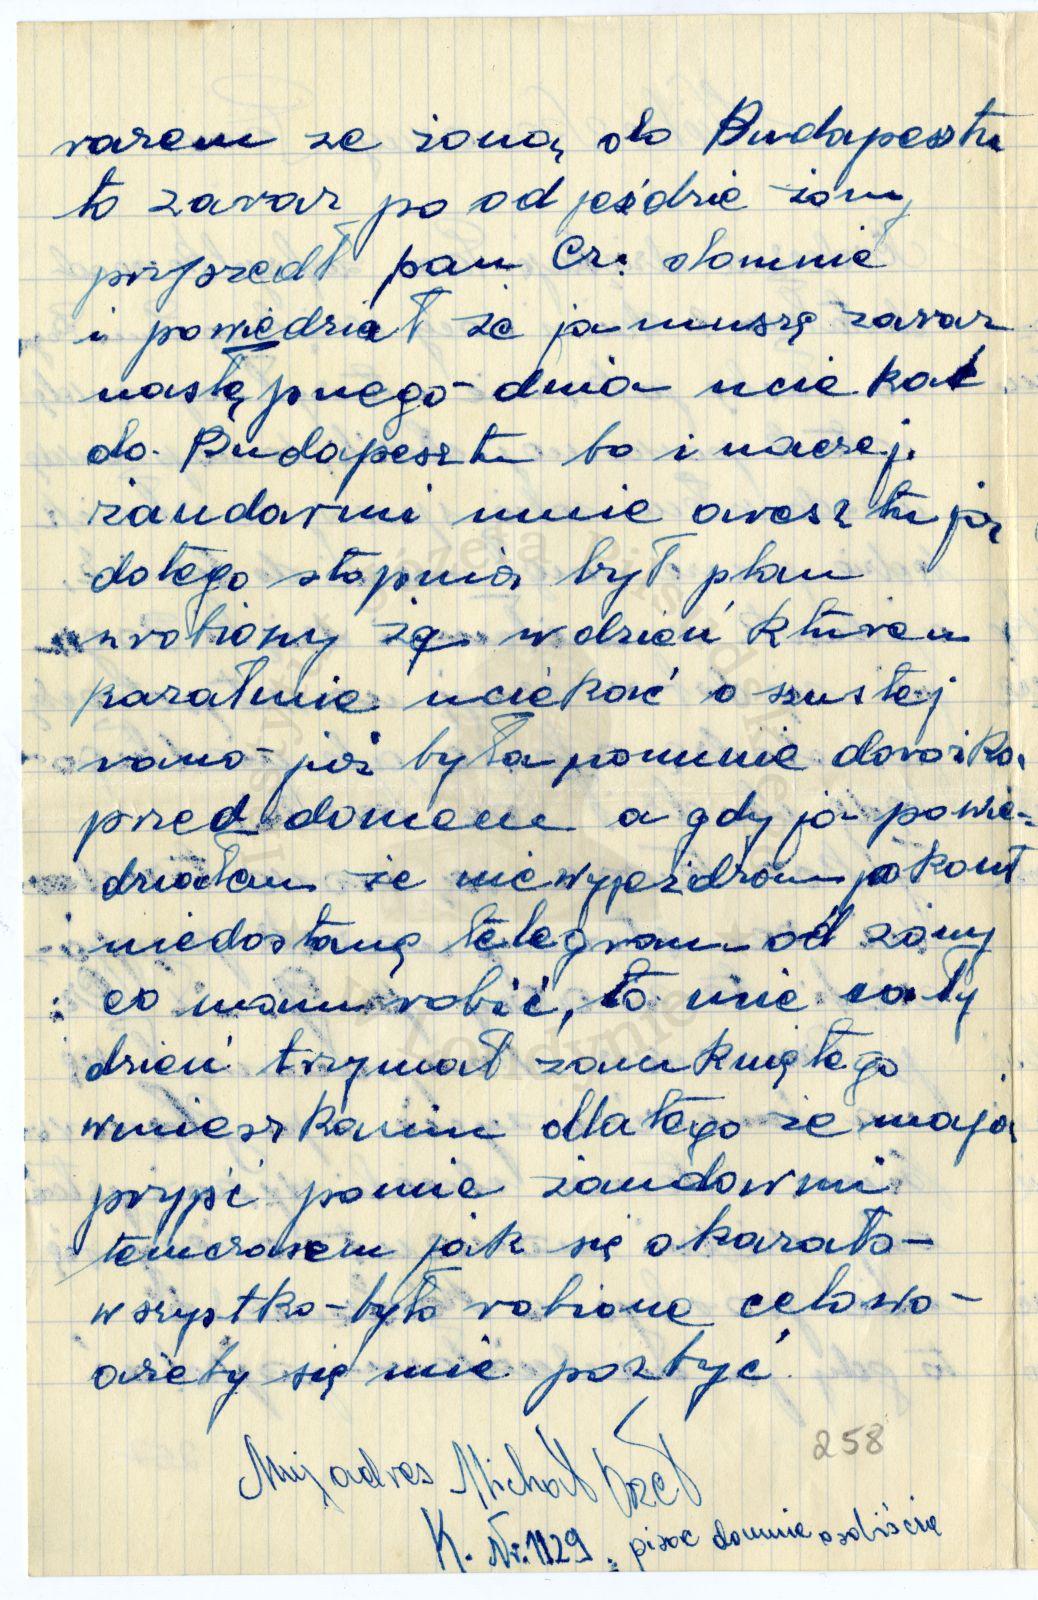 razem ze żoną do Budapesztu
to zaraz po odjeździe żony
przyszedł pan Cz: domnie
i powiedział że ja muszę zaraz
następnego dnia uciekać
do. Budapesztu bo inaczej.
żandarmi mnie aresztują
dotego stopnia był plan
zrobiony że w dzień którem
kazałmie uciekać o szustej
rano już była pomnie dorożka
przed domem a gdy ja powie-
działem że niewyjeżdżam pokont
niedostanę telegram od żony
co mam robić, to mie cały
dzień trzymał zamkniętego
wmieszkaniu dlatego że mają
przyść pomie żandarmi
temczasem jak się okazało-
wszystko-było robione celowo-
ażeby się mie pozbyć.
Mój adres Michał
K. Nr. 1129. pisać domnie osobiście
258